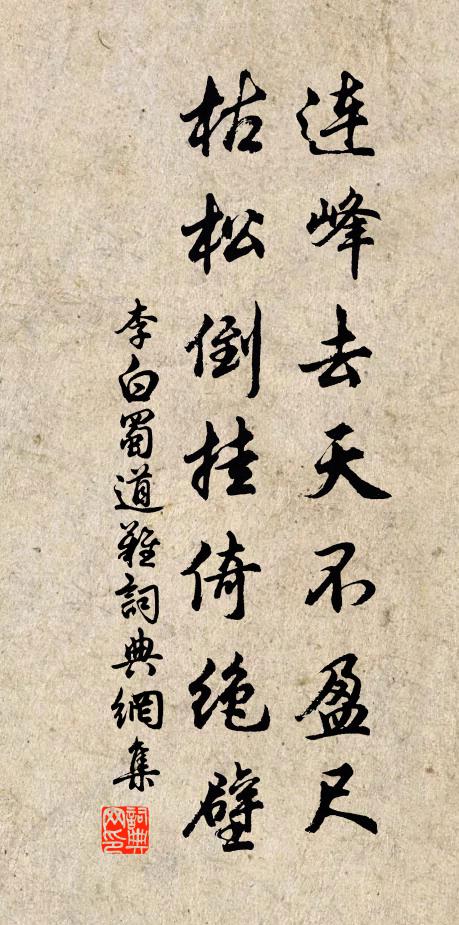 連峰去天不盈尺
枯松倒挂倚絶壁
李白蜀道難詞典網集
詞典網印